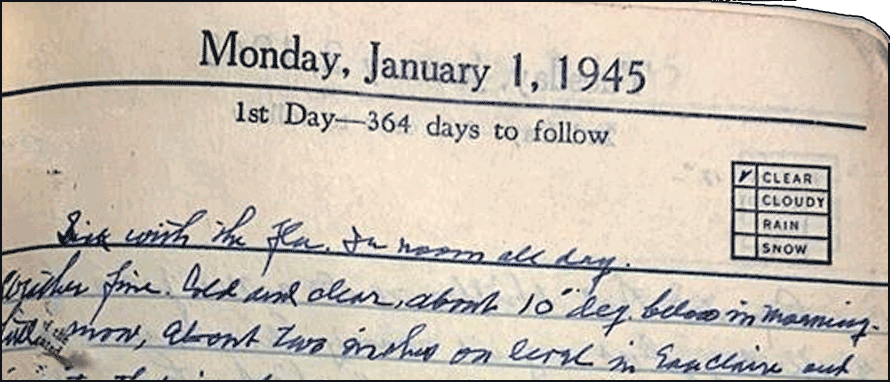 Monday, January 1, 1945
1st Day—364 days to follow
CLEAR
CLOUDY
RAIN
SNOW
Sick with the Flu. In room all day.
Weather fine. Cold and clear, about 10° deg below in morning.
snow, about two inches on level in Eau Claire and